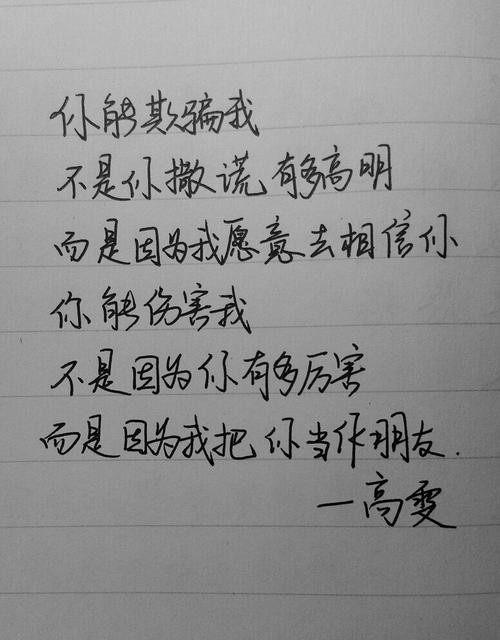 你能欺骗我
不是你撒谎有多高明
而是因为我愿意去相信你
你能伤害我
不是因为你有多厉害
而是因为我把你当作朋友.
一高雯